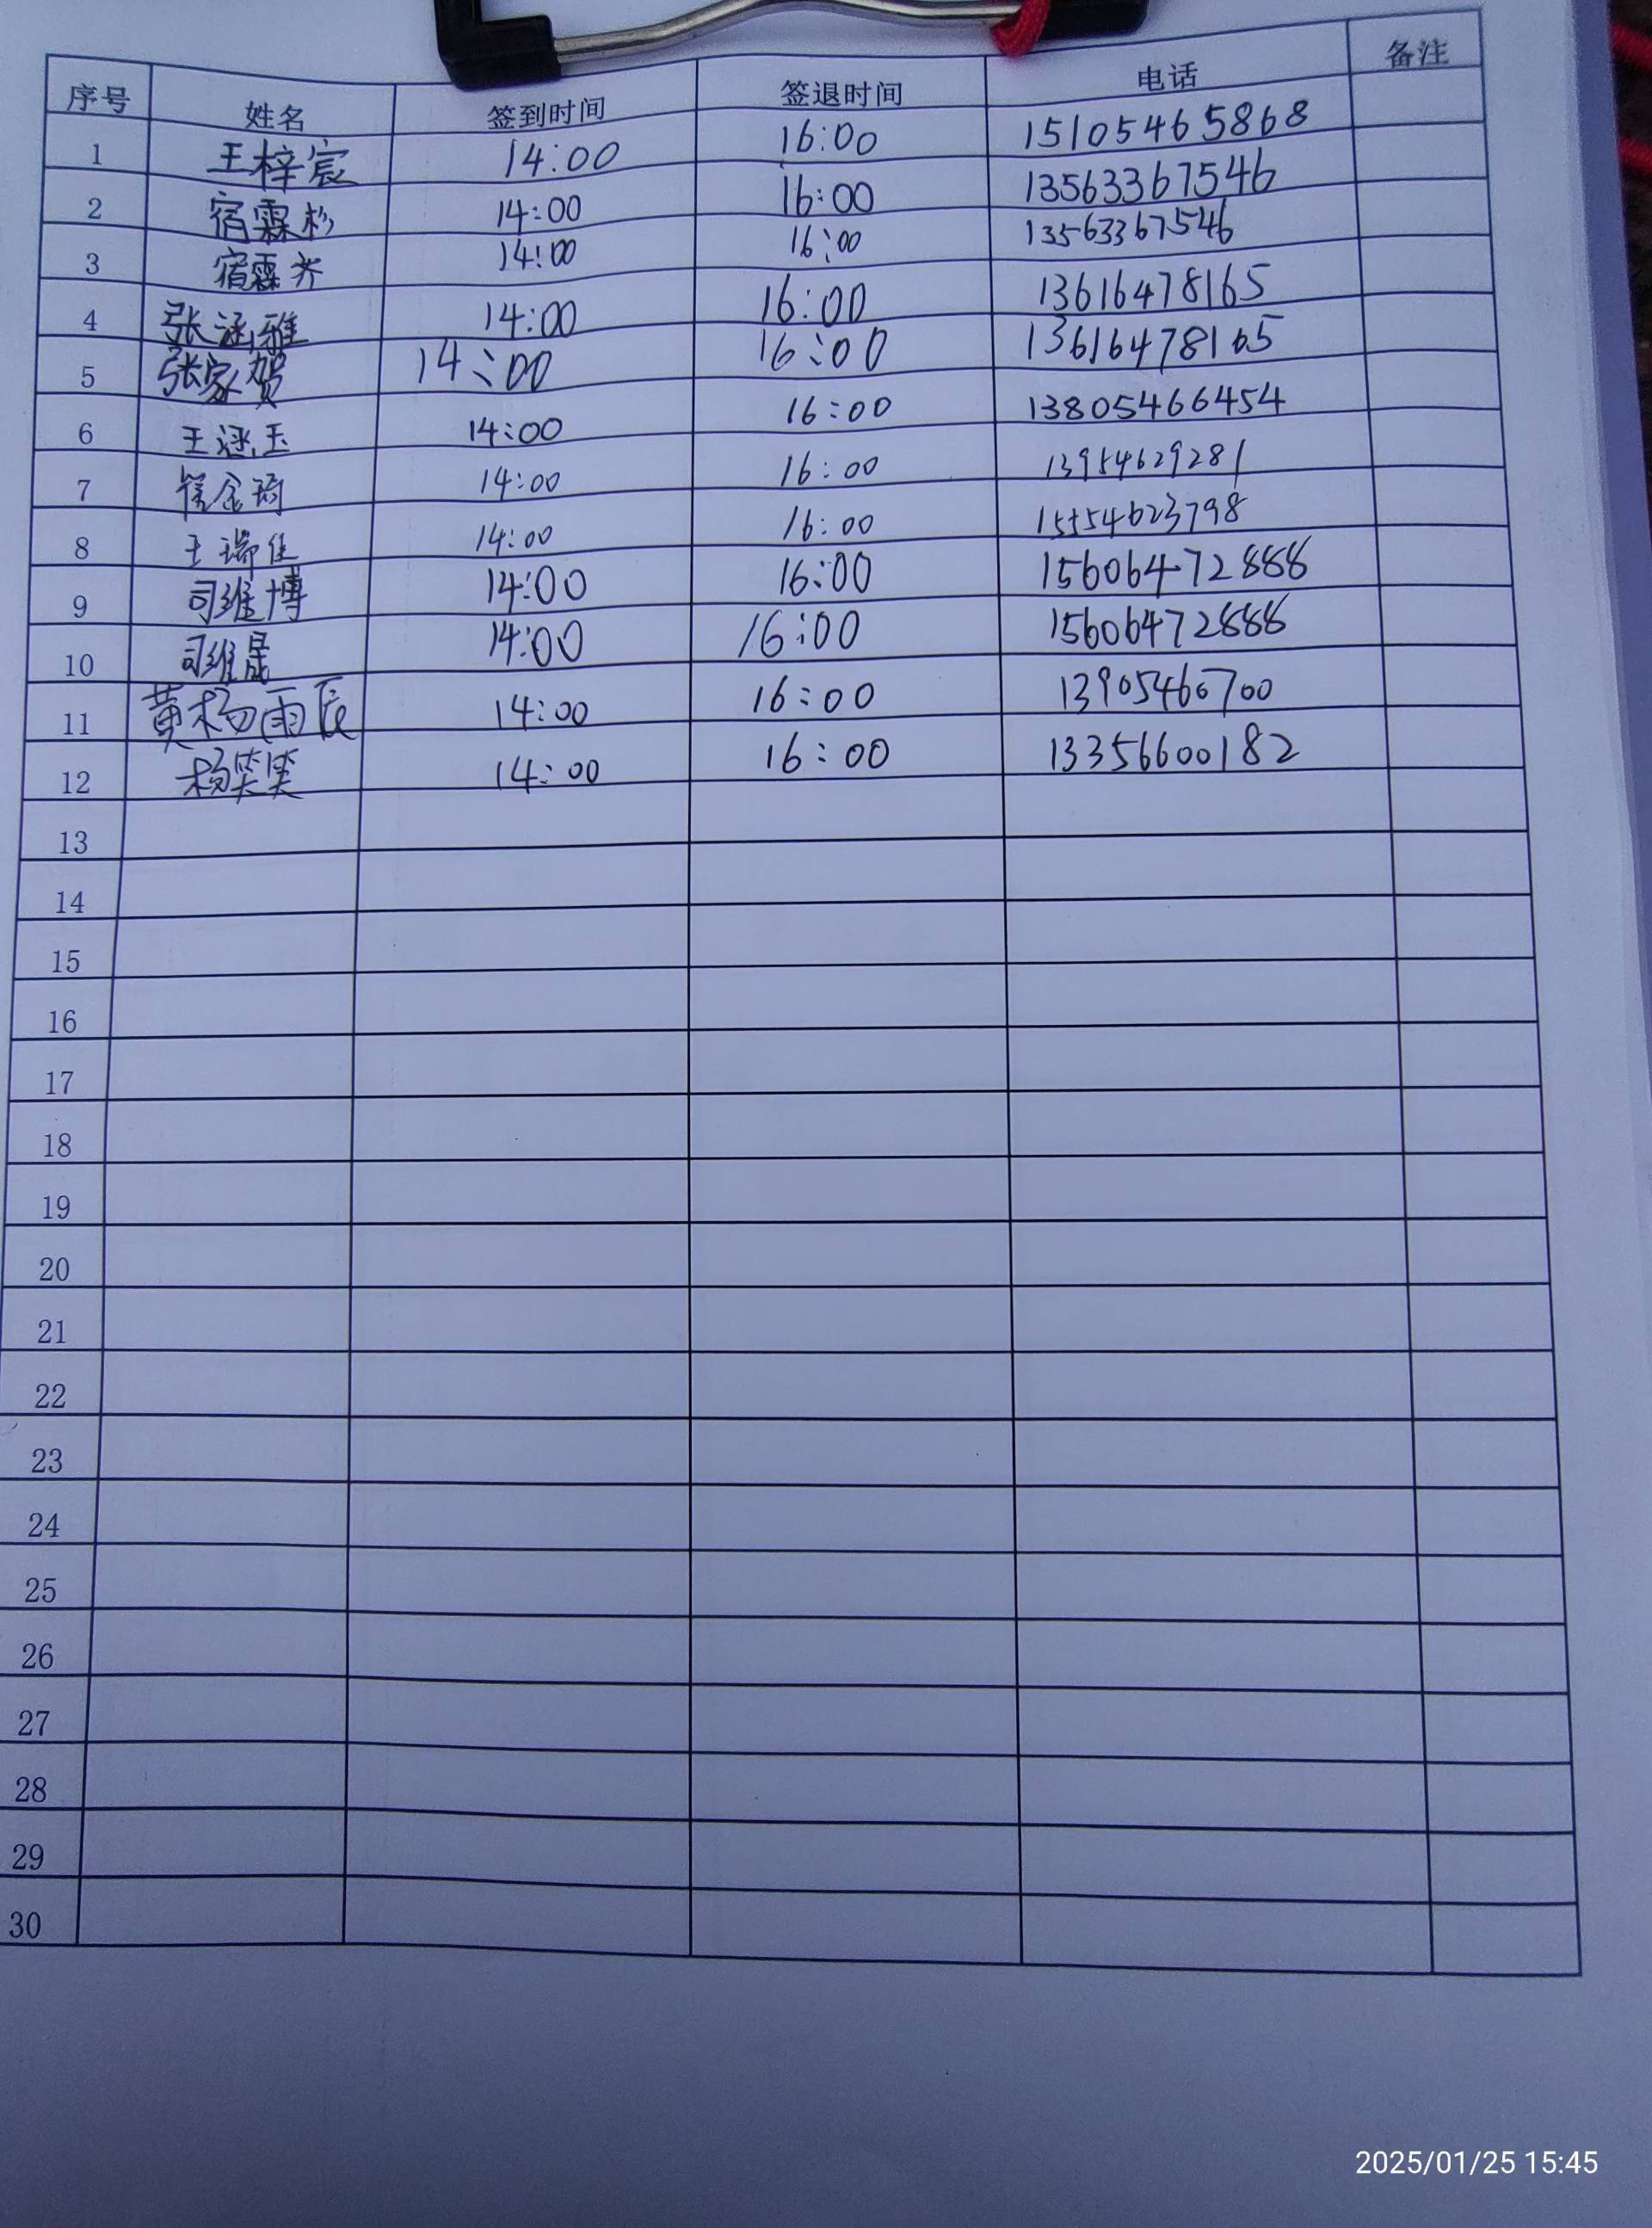 序号 姓名 签到时间 签退时间 电话 备注
1 王梓宸 14:00 16:00 15105465868
2 宿霖杉 14:00 16:00 13563367546
3 宿霖 14:00 16:00 13563367546
4 张涵雅 14:00 16:00 13616478165
5 张家贺 14:00 16:00 13616478165
6 王涵玉 14:00 16:00 13805466454
7 金琦 14:00 16:00 13954629281
8 王瑞佳 14:00 16:00 15554623798
9 司维博 14:00 16:00 15606472888
10 司维晟 14:00 16:00 15606472888
11 黄杨雨辰 14:00 16:00 13905460700
12 杨笑笑 14:00 16:00 13356600182
13
14
15
16
17
18
19
20
21
22
23
24
25
26
27
28
29
30
2025/01/25 15:45